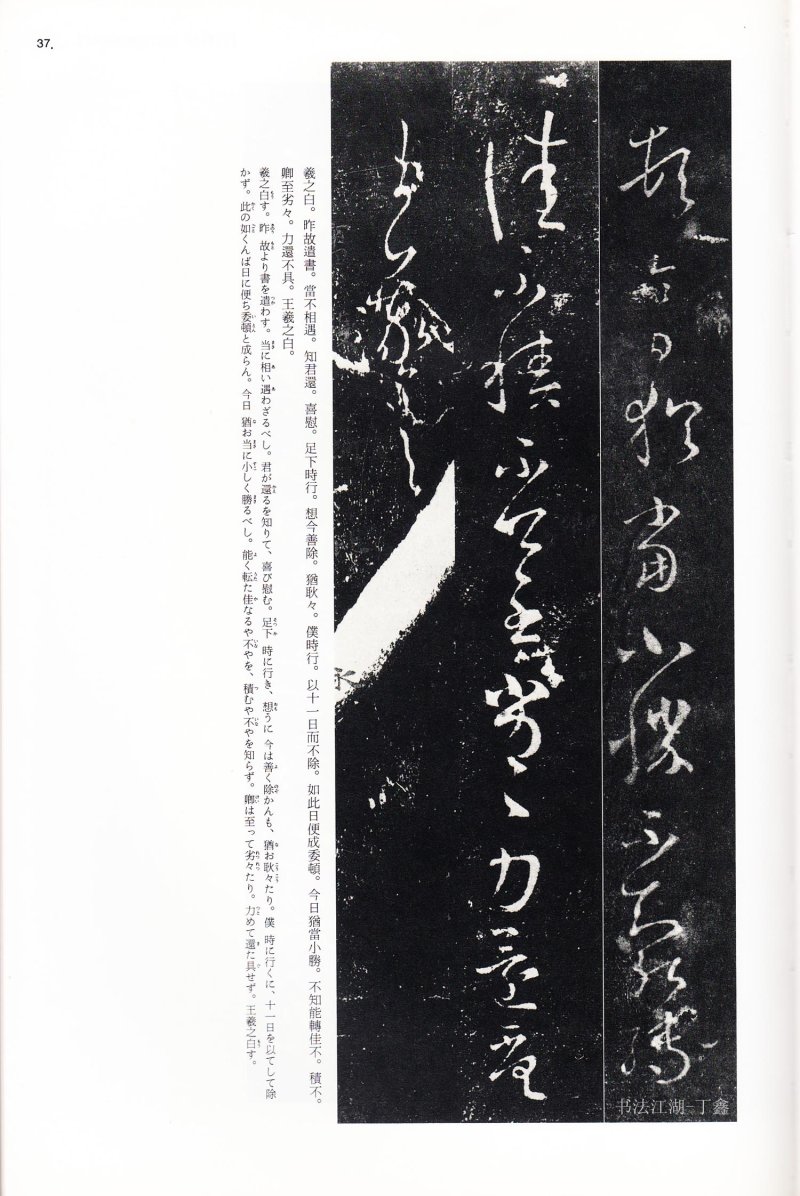 37.
頓今日猶當小勝不知能轉
佳不積不卿至劣々力還不具
王羲之
羲之白。昨故遣書。當不相遇。知君還。喜慰。足下時行。想今善除。猶耿々。僕時行。以十一日而不除。如此日便成委頓。今日猶當小勝。不知能轉佳不。積不。
卿至劣々。力還不具。王羲之白。
羲之白す。昨 故より書を遣わす。当に相い遇わざるべし。君が還るを知りて、喜び慰む。足下 時に行き、想うに 今は善く除かんも、猶お耿々たり。僕 時に行くに、十一日を以てして除
かず。此の如くんば日に便ち委頓と成らん。今日 猶お当に小しく勝るべし。能く転た佳なるや不やを、積むや不やを知らず。卿は至って劣々たり。力めて還た具せず。王羲之白す。
书法江湖-丁鑫